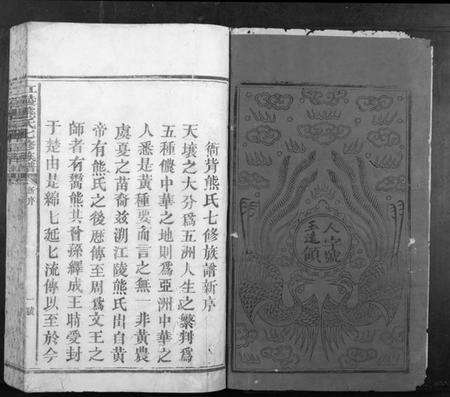 人字號
衙背熊氏七修族譜新序
天壤之大分爲五洲人生之繁判爲
五種儂中華之地則爲亞洲中華之
人悉是黃種要而言之無一非黃農
虞夏之苗裔茲溯江陵熊氏出自黃
帝有熊氏之後歷傳至周爲文王之
師者有鬻熊其曾孫繹成王時受封
于楚由是綿七延七流傳以至於今
江陵熊氏七修族譜 新序 一號